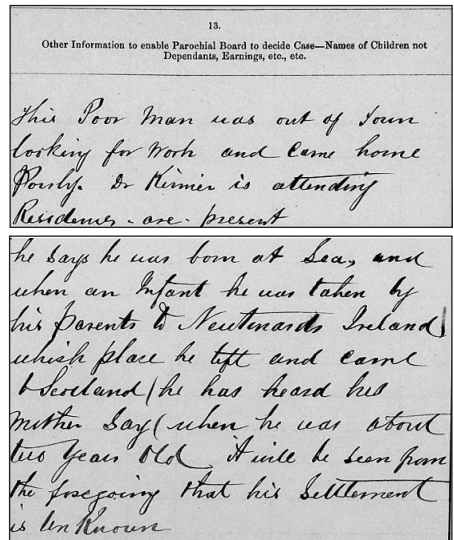 13.
Other Information to enable Parochial Board to decide Case—Names of Children not
Dependants, Earnings, etc., etc.
This Poor Man was out of Town
looking for Work and Came home
Poorly. Dr is attending
Residences - are - present
he Says he was born at Sea, and
when an Infant he was taken by
his parents to Newtenards Ireland
which place he left and came
to Scotland (he has heard his
Mother Say ( when he was about
two Years Old It will be seen from
the foregoing that his Settlement
is UnKnown